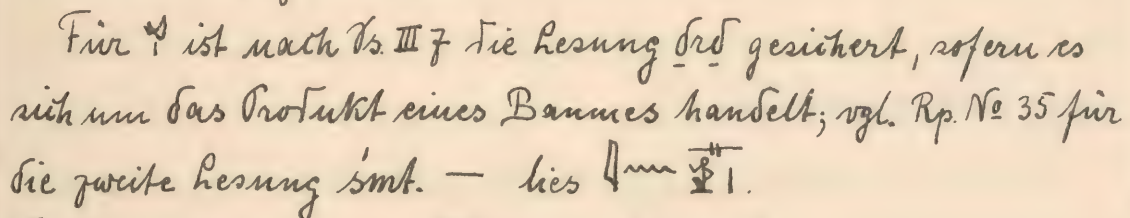 Für ist nach Vs. III 7 die Lesung ḏrḏ gesichert, sofern es
sich um das Produkt eines Baumes handelt; vgl. Rp. Nº 35 für
die zweite Lesung śmt. — lies